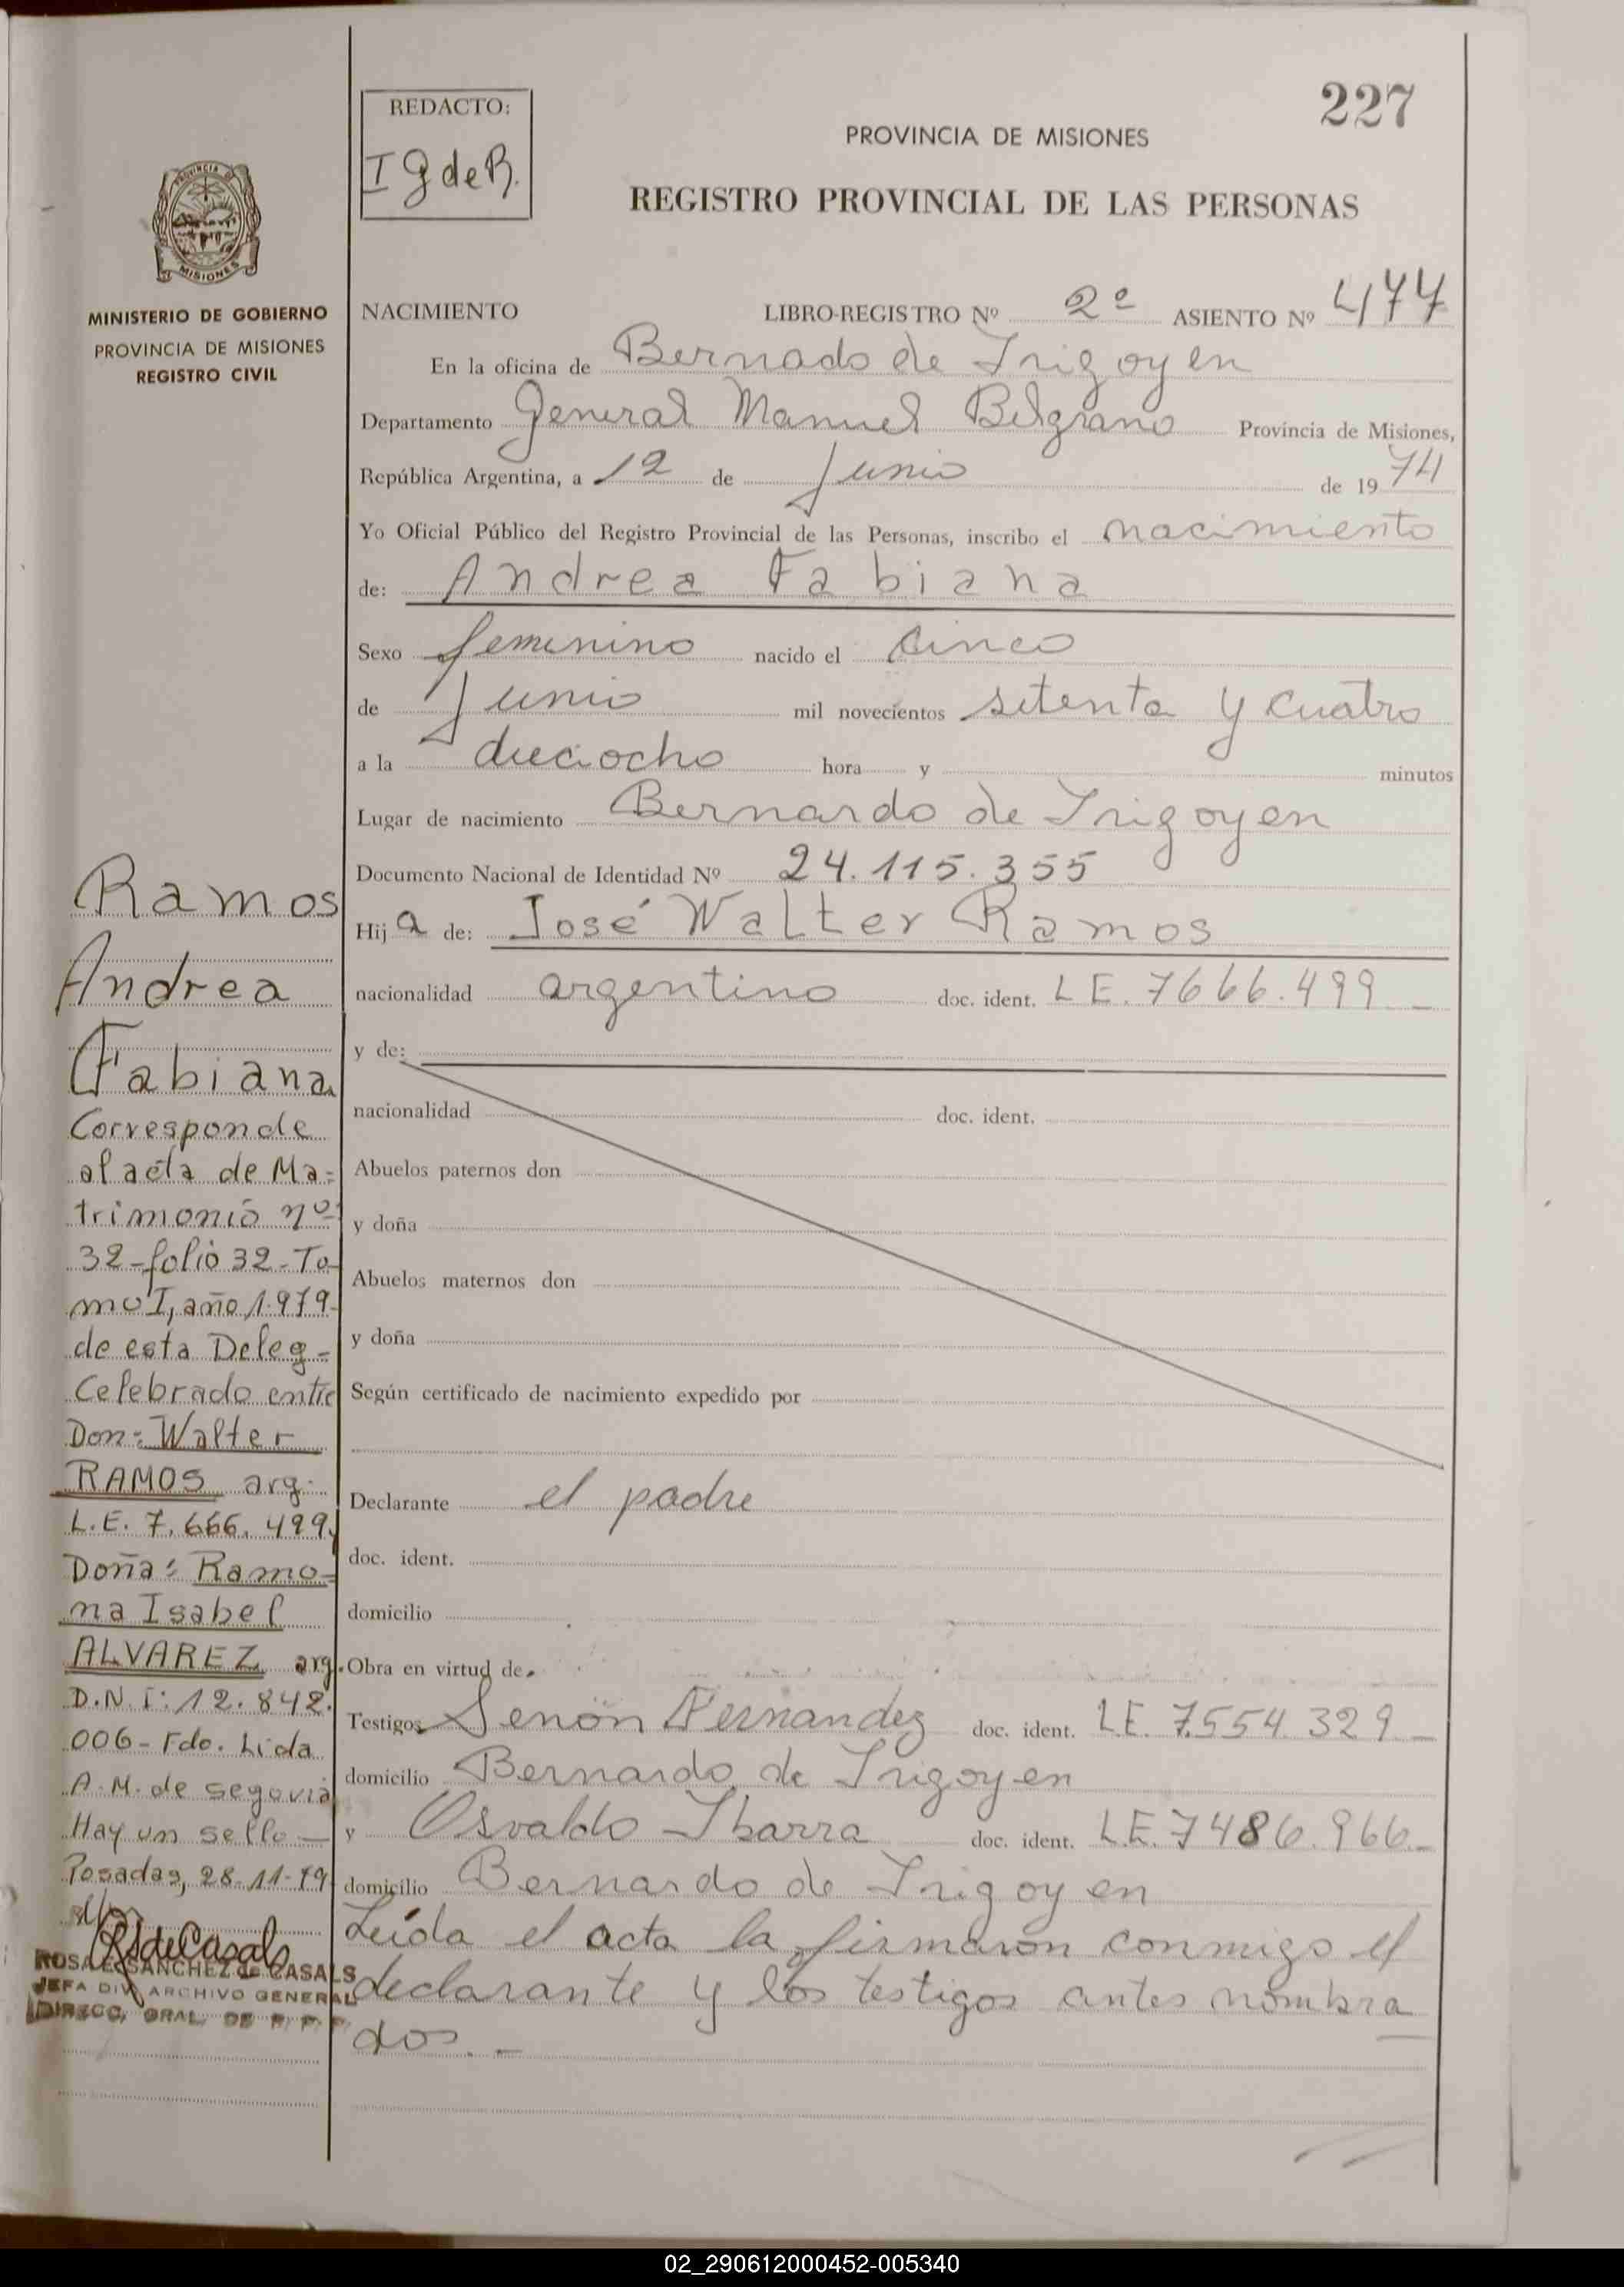 227
REDACTO:
I G de R.
PROVINCIA DE MISIONES
REGISTRO PROVINCIAL DE LAS PERSONAS
PROVINCIA DE
MISIONES
MINISTERIO DE GOBIERNO
PROVINCIA DE MISIONES
REGISTRO CIVIL
NACIMIENTO LIBRO-REGISTRO Nº 2º ASIENTO Nº 477
En la oficina de Bernado de Irigoyen
Departamento General Manuel Belgrano Provincia de Misiones,
República Argentina, a 12 de Junio de 1974
Yo Oficial Público del Registro Provincial de las Personas, inscribo el nacimiento
de: Andrea Fabiana
Sexo femenino nacido el cinco
de Junio mil novecientos setenta y cuatro
a la dieciocho hora y minutos
Lugar de nacimiento Bernardo de Irigoyen
Documento Nacional de Identidad Nº 24.115.355
Hija de: José Walter Ramos
nacionalidad argentino doc. ident. LE. 7666.499
y de:
nacionalidad doc. ident.
Abuelos paternos don
y doña
Abuelos maternos don
y doña
Según certificado de nacimiento expedido por
Declarante el padre
doc. ident.
domicilio
Obra en virtud de
Testigos Senón Fernandez doc. ident. LE. 7.554.329
domicilio Bernardo de Irigoyen
y Osvaldo Ibarra doc. ident. LE. 7486.966
domicilio Bernardo de Irigoyen
Leída el acta la firmaron conmigo el
declarante y los testigos antes nombra
dos. -
Ramos
Andrea
Fabiana
Corresponde
al acta de Ma=
trimonio nº
32-folio 32-To-
mo I, año 1.979-
de esta Deleg=
Celebrado entre
Don: Walter
RAMOS arg.
L.E. 7.666.499y
Doña: Ramo=
na Isabel
ALVAREZ arg.
D.N.I: 12.842.
006- Fdo. Lida
A.M. de segovia
Hay un sello-
Posadas, 28-11-79
RS de Casals
ROSA E. SANCHEZ de CASALS
JEFA DIV. ARCHIVO GENERAL
DIRECC. GRAL. DE R. P. P.
02_290612000452-005340